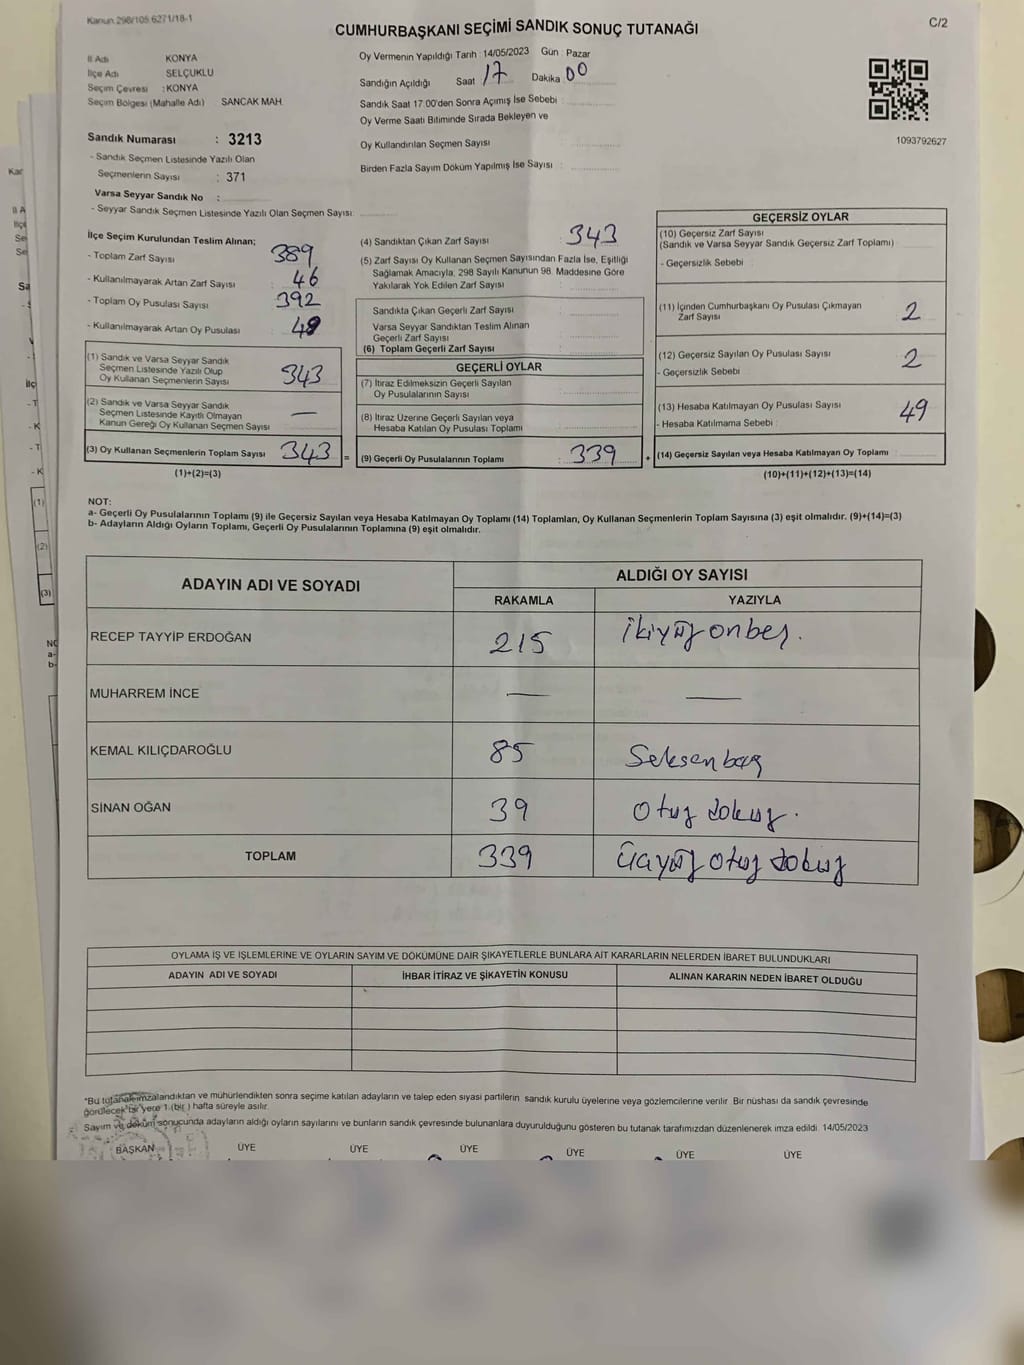 Kanun 298/105 6271/18-1
CUMHURBAŞKANI SEÇİMİ SANDIK SONUÇ TUTANAĞI
C/2
İl Adı KONYA
İlçe Adı SELÇUKLU
Seçim Çevresi : KONYA
Seçim Bölgesi (Mahalle Adı) SANCAK MAH.
Oy Vermenin Yapıldığı Tarih : 14/05/2023 Gün : Pazar
Sandığın Açıldığı Saat 17 Dakika 00
Sandık Saat 17.00'den Sonra Açımış İse Sebebi :
Oy Verme Saati Bitiminde Sırada Bekleyen ve
Oy Kullandırılan Seçmen Sayısı
Birden Fazla Sayım Döküm Yapılmış İse Sayısı :
1093792627
Sandık Numarası : 3213
- Sandık Seçmen Listesinde Yazılı Olan
Seçmenlerin Sayısı : 371
Varsa Seyyar Sandık No :
- Seyyar Sandık Seçmen Listesinde Yazılı Olan Seçmen Sayısı:
İlçe Seçim Kurulundan Teslim Alınan;
- Toplam Zarf Sayısı : 389
- Kullanılmayarak Artan Zarf Sayısı : 46
- Toplam Oy Pusulası Sayısı : 392
- Kullanılmayarak Artan Oy Pusulası : 49
(1) Sandık ve Varsa Seyyar Sandık
Seçmen Listesinde Yazılı Olup
Oy Kullanan Seçmenlerin Sayısı 343
(2) Sandık ve Varsa Seyyar Sandık
Seçmen Listesinde Kayıtlı Olmayan
Kanun Gereği Oy Kullanan Seçmen Sayısı —
(3) Oy Kullanan Seçmenlerin Toplam Sayısı 343 =
(1)+(2)=(3)
(4) Sandıktan Çıkan Zarf Sayısı : 343
(5) Zarf Sayısı Oy Kullanan Seçmen Sayısından Fazla İse, Eşitliği
Sağlamak Amacıyla, 298 Sayılı Kanunun 98. Maddesine Göre
Yakılarak Yok Edilen Zarf Sayısı
Sandıkta Çıkan Geçerli Zarf Sayısı
Varsa Seyyar Sandıktan Teslim Alınan
Geçerli Zarf Sayısı
(6) Toplam Geçerli Zarf Sayısı
GEÇERLİ OYLAR
(7) İtiraz Edilmeksizin Geçerli Sayılan
Oy Pusulalarının Sayısı
(8) İtiraz Üzerine Geçerli Sayılan veya
Hesaba Katılan Oy Pusulası Toplamı
(9) Geçerli Oy Pusulalarının Toplamı : 339 +
GEÇERSİZ OYLAR
(10) Geçersiz Zarf Sayısı
(Sandık ve Varsa Seyyar Sandık Geçersiz Zarf Toplamı)
- Geçersizlik Sebebi :
(11) İçinden Cumhurbaşkanı Oy Pusulası Çıkmayan
Zarf Sayısı 2
(12) Geçersiz Sayılan Oy Pusulası Sayısı 2
- Geçersizlik Sebebi
(13) Hesaba Katılmayan Oy Pusulası Sayısı 49
- Hesaba Katılmama Sebebi :
(14) Geçersiz Sayılan veya Hesaba Katılmayan Oy Toplamı :
(10)+(11)+(12)+(13)=(14)
NOT:
a- Geçerli Oy Pusulalarının Toplamı (9) ile Geçersiz Sayılan veya Hesaba Katılmayan Oy Toplamı (14) Toplamları, Oy Kullanan Seçmenlerin Toplam Sayısına (3) eşit olmalıdır. (9)+(14)=(3)
b- Adayların Aldığı Oyların Toplamı, Geçerli Oy Pusulalarının Toplamına (9) eşit olmalıdır.
ADAYIN ADI VE SOYADI
ALDIĞI OY SAYISI
RAKAMLA YAZIYLA
RECEP TAYYİP ERDOĞAN 215 ikiyüz onbeş.
MUHARREM İNCE — —
KEMAL KILIÇDAROĞLU 85 Seksen beş
SİNAN OĞAN 39 Otuz dokuz.
TOPLAM 339 üçyüz otuz dokuz
OYLAMA İŞ VE İŞLEMLERİNE VE OYLARIN SAYIM VE DÖKÜMÜNE DAİR ŞİKAYETLERLE BUNLARA AİT KARARLARIN NELERDEN İBARET BULUNDUKLARI
ADAYIN ADI VE SOYADI İHBAR İTİRAZ VE ŞİKAYETİN KONUSU ALINAN KARARIN NEDEN İBARET OLDUĞU
*Bu tutanak imzalandıktan ve mühürlendikten sonra seçime katılan adayların ve talep eden siyasi partilerin sandık kurulu üyelerine veya gözlemcilerine verilir. Bir nüshası da sandık çevresinde
görülecek bir yere 1 (bir) hafta süreyle asılır.
Sayım ve döküm sonucunda adayların aldığı oyların sayılarını ve bunların sandık çevresinde bulunanlara duyurulduğunu gösteren bu tutanak tarafımızdan düzenlenerek imza edildi. 14/05/2023
BAŞKAN ÜYE ÜYE ÜYE ÜYE ÜYE ÜYE